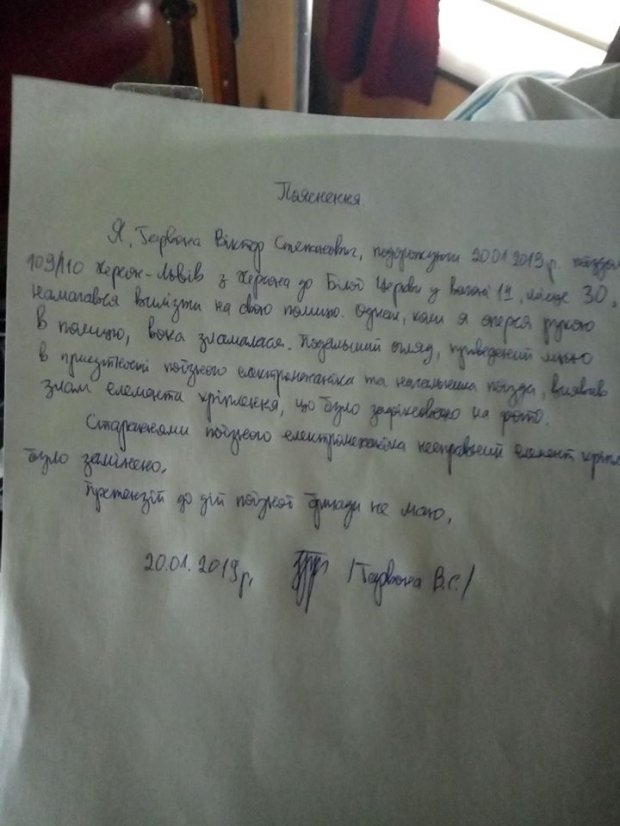 Пояснення
Я, Віктор Степанович, подорожуючи 20.01.2019 р. поїздом
109/110 Херсон-Львів з Херсона до Білої Церкви у вагоні 11, місце 30,
намагався вилізти на свою полицю. Однак, коли я оперся рукою
в полицю, вона зламалася. Подальший огляд, проведений мною
в присутності поїзного електромеханіка та начальника поїзда, виявив
злам елемента кріплення, що було зафіксовано на фото.
Стараннями поїзного електромеханіка несправний елемент
було замінено.
Претензій до дій поїзної бригади не маю.
20.01.2019 р. В.С./